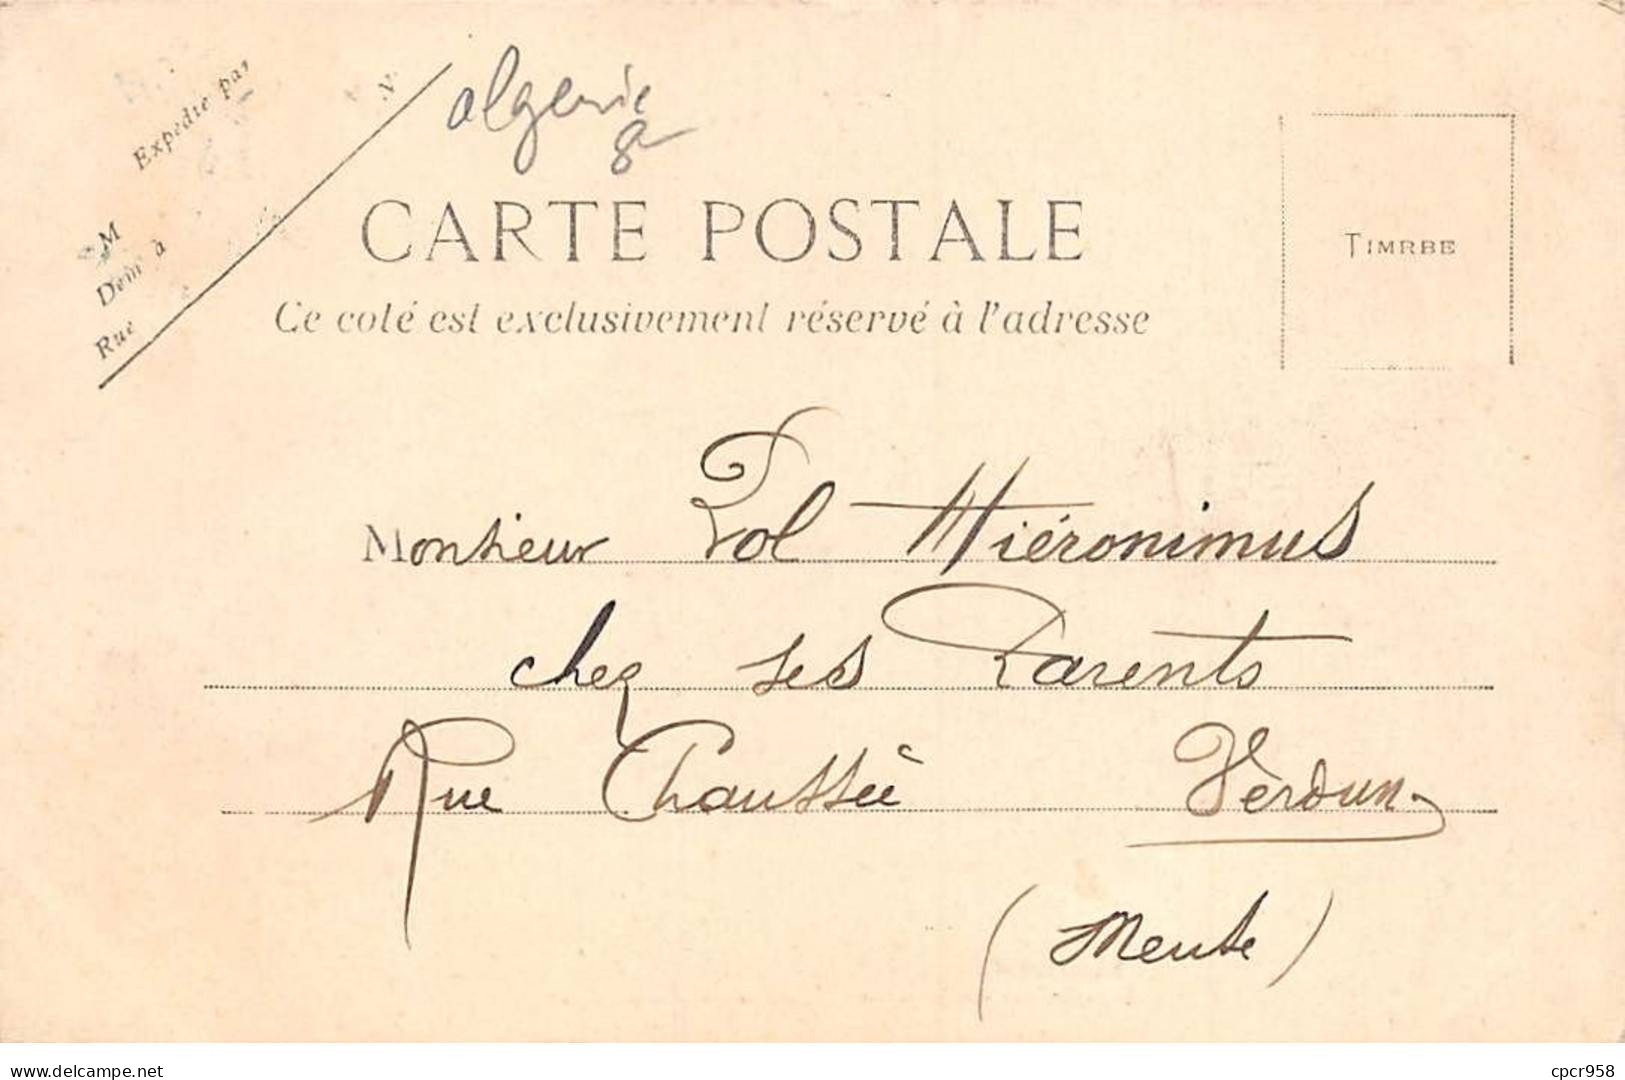 Expédié par
M
Dem<sup>t</sup> à
Rue
N°
algerie
CARTE POSTALE
Ce coté est exclusivement réservé à l'adresse
TIMRBE
Monsieur Pol Hiéronimus
chez ses Parents
Rue Chaussée Verdun
(Meuse)
www.delcampe.net
cpcr958